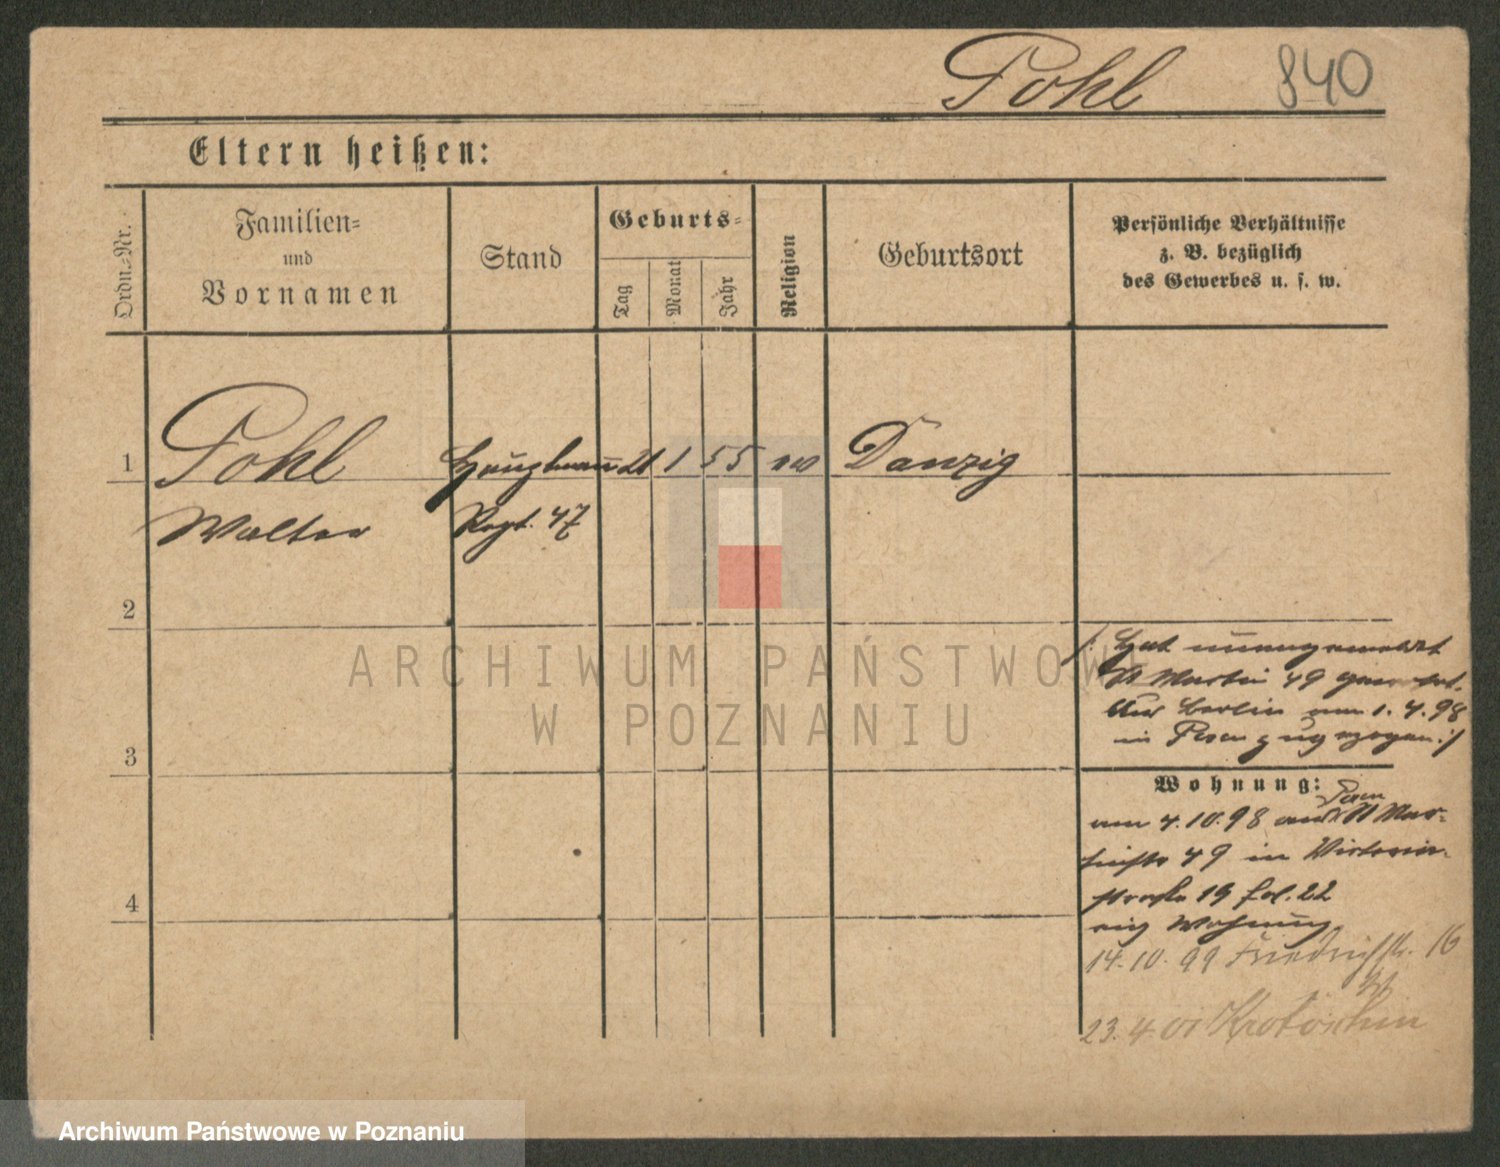 Pohl 840
Eltern heißen:
Ordn.-Nr.
Familien-
und
Vornamen
Stand
Geburts-
Tag
Monat
Jahr
Religion
Geburtsort
Persönliche Verhältnisse
z. B. bezüglich
des Gewerbes u. s. w.
1 Pohl Hauptmann 21 1 55 ev Danzig
Walter Regt. 47
2
3
4
/: Hat
St Martin 49
Aus Berlin am 1.4.98
in Posen zugezogen :/
Wohnung:
Posen
am 4.10.98 aus St Mar-
tinstr 49 in Victoria-
straße 19 fol. 22
eig Wohnung
14.10.99 Friedrichstr. 16
23.4 01 Krotoschin
ARCHIWUM PAŃSTWOWE
W POZNANIU
Archiwum Państwowe w Poznaniu